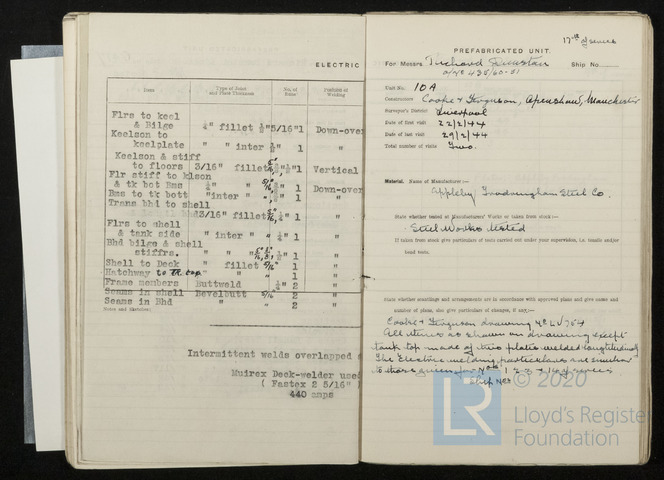 ELECTRIC
Item
Type of Joint and Plate Thickness
No. of Runs
Position of Welding
Flrs to keel
& Bilge ¼" fillet 5/16" 1 Down-over
Keelson to
keelplate " " inter 1 "
Keelson & stiff
to floors 3/16" fillet 1 Vertical
Flr stiff to klson
& tk bot Bms " " 1 Down-over
Bms to tk bott " inter " " 1 "
Trans bhd to shell
3/16" fillet 1 "
Flrs to shell
& tank side " inter " " 1 "
Bhd bilge & shell
stiffrs. " " " 1 "
Shell to Deck " fillet 5/16 1 "
Hatchway to " " " 1 "
Frame members Buttweld ¼" 2 "
Seams in shell Bevelbutt 5/16 2 "
Seams in Bhd " " 2 "
Notes and Sketches:
Intermittent welds overlapped
Muirex Deck-welder used
( Fastex 2 5/16" )
440 amps
17th of series
PREFABRICATED UNIT.
For Messrs. Richard Dunstan Ship No.
Unit No. 10A
Constructors Cooke & Ferguson, Openshaw, Manchester
Surveyor's District Liverpool
Date of first visit 22/2/44
Date of last visit 29/2/44
Total number of visits Two.
Material. Name of Manufacturer :—
Appleby Frodingham Steel Co.
State whether tested at Manufacturers' Works or taken from stock :—
Steel Works tested
If taken from stock give particulars of tests carried out under your supervision, i.e. tensile and/or
bend tests.
State whether scantlings and arrangements are in accordance with approved plans and give name and
number of plans, also give particulars of changes, if any.:—
Cooke & Ferguson drawing
All items as shown on drawing except
tank top made of two plates welded longitudinally
The Electric welding particulars are similar
to those given for Nos 1 2 3 & 16 of series
Ship Nos
© 2020
LR
Lloyd's Register
Foundation